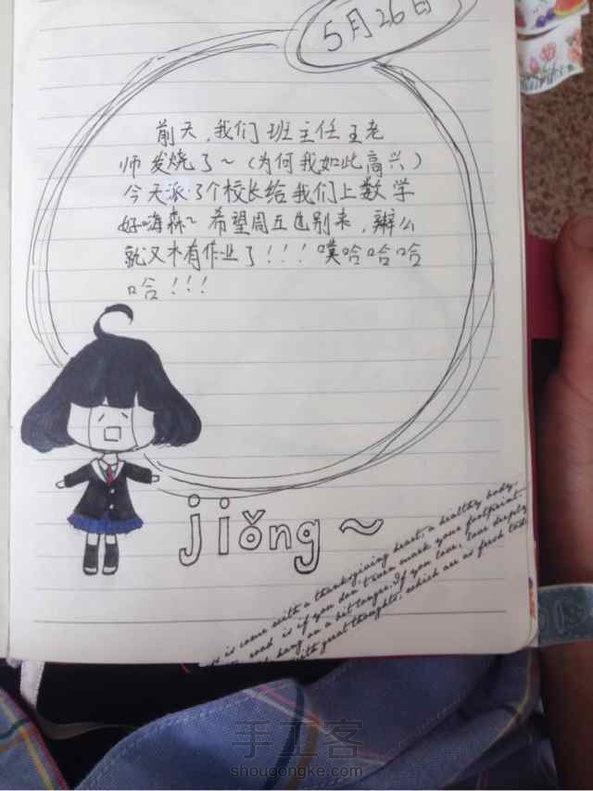 5月26日
前天，我们班主任王老
师发烧了～（为何我如此高兴）
今天派了个校长给我们上数学
好嗨森～希望周五也别来，辣么
就又木有作业了！！！噗哈哈哈
哈！！！
jiǒng～
is come with a thanksgiving heart, a healthy body,
road is if you don't even mark your footprint.
hang on a bit longer. If you love, love deeply
with great thoughts, which are as fresh
手工客
shougongke.com